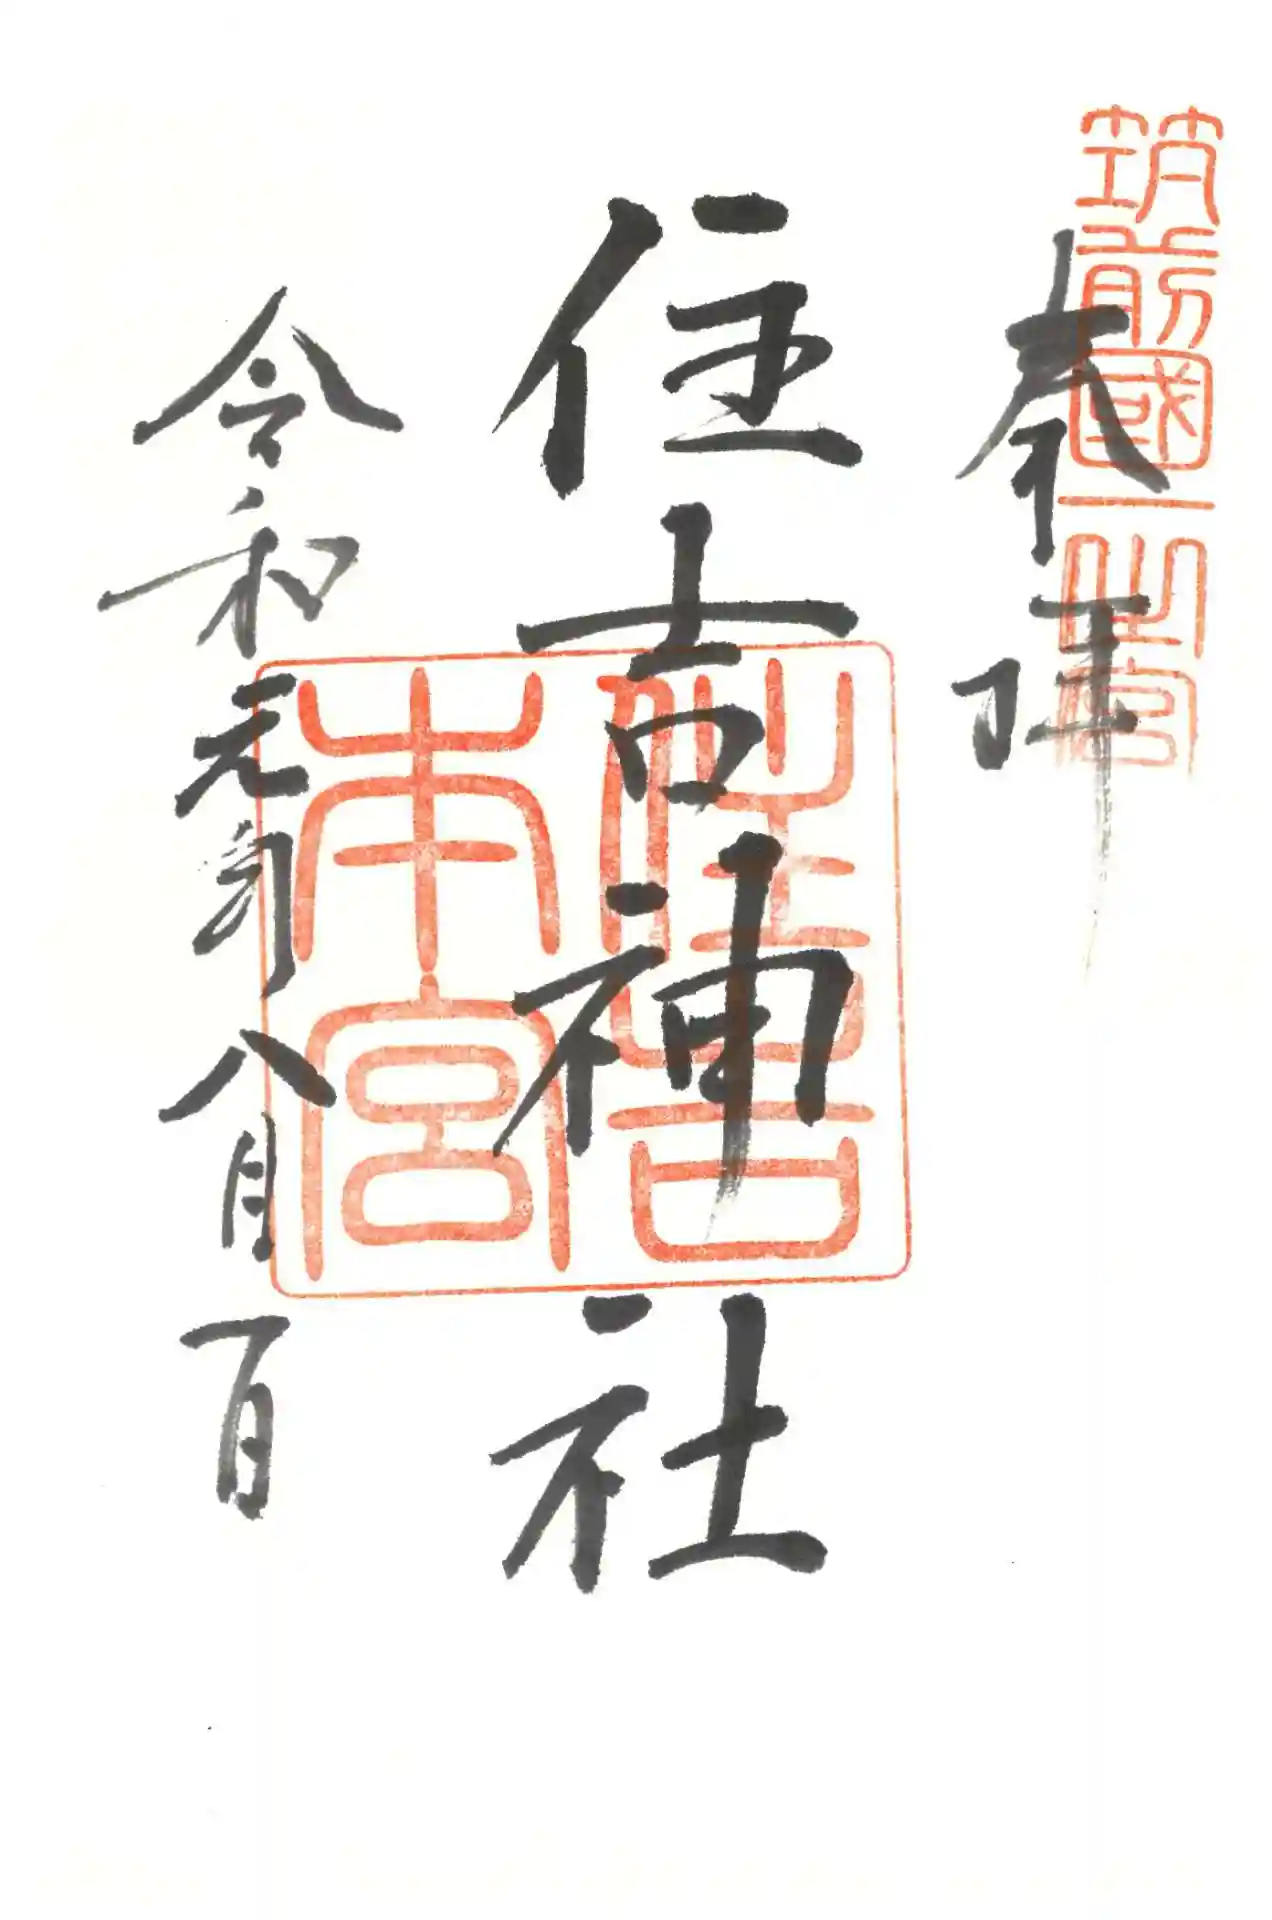 筑前國一之宮
奉拝
住吉神社
住吉
本宮
令和元年八月一日